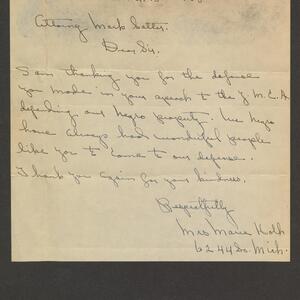 Attorney Mark Satter.
Dear Sir,
I am thanking you for the defense
you made in your speech to the Y.M.C.A.
defending our Negro property. We Negro
have always had wonderful people
like you to come to our defense.
I thank you again for your kindness.
Respectfully
Mrs Marie Kolb
6244 So. Mich.